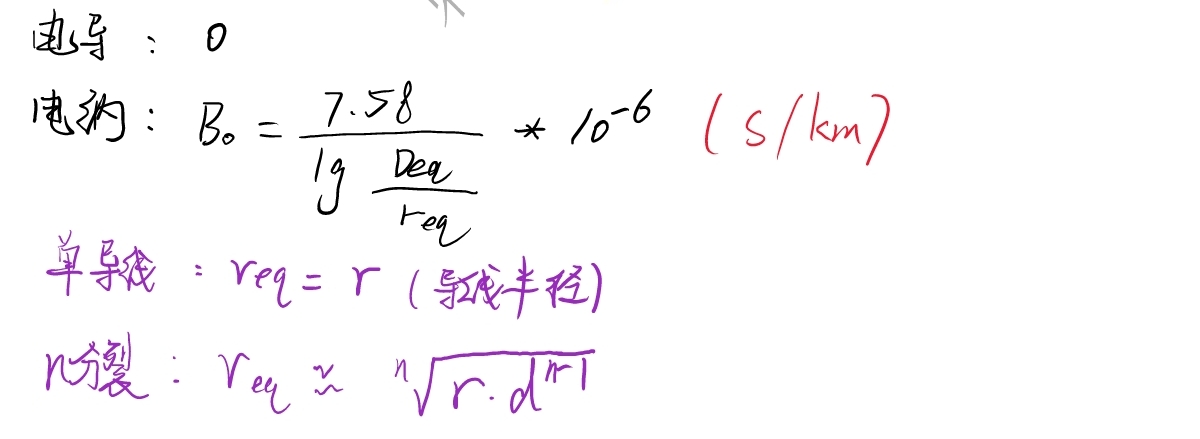 电导: 0
电纳: B₀ = \frac{7.58}{lg \frac{Deq}{req}} * 10⁻⁶ (S/km)
单导线: req = r (导线半径)
n分裂: req ≈ \sqrt[n]{r·d^{n-1}}